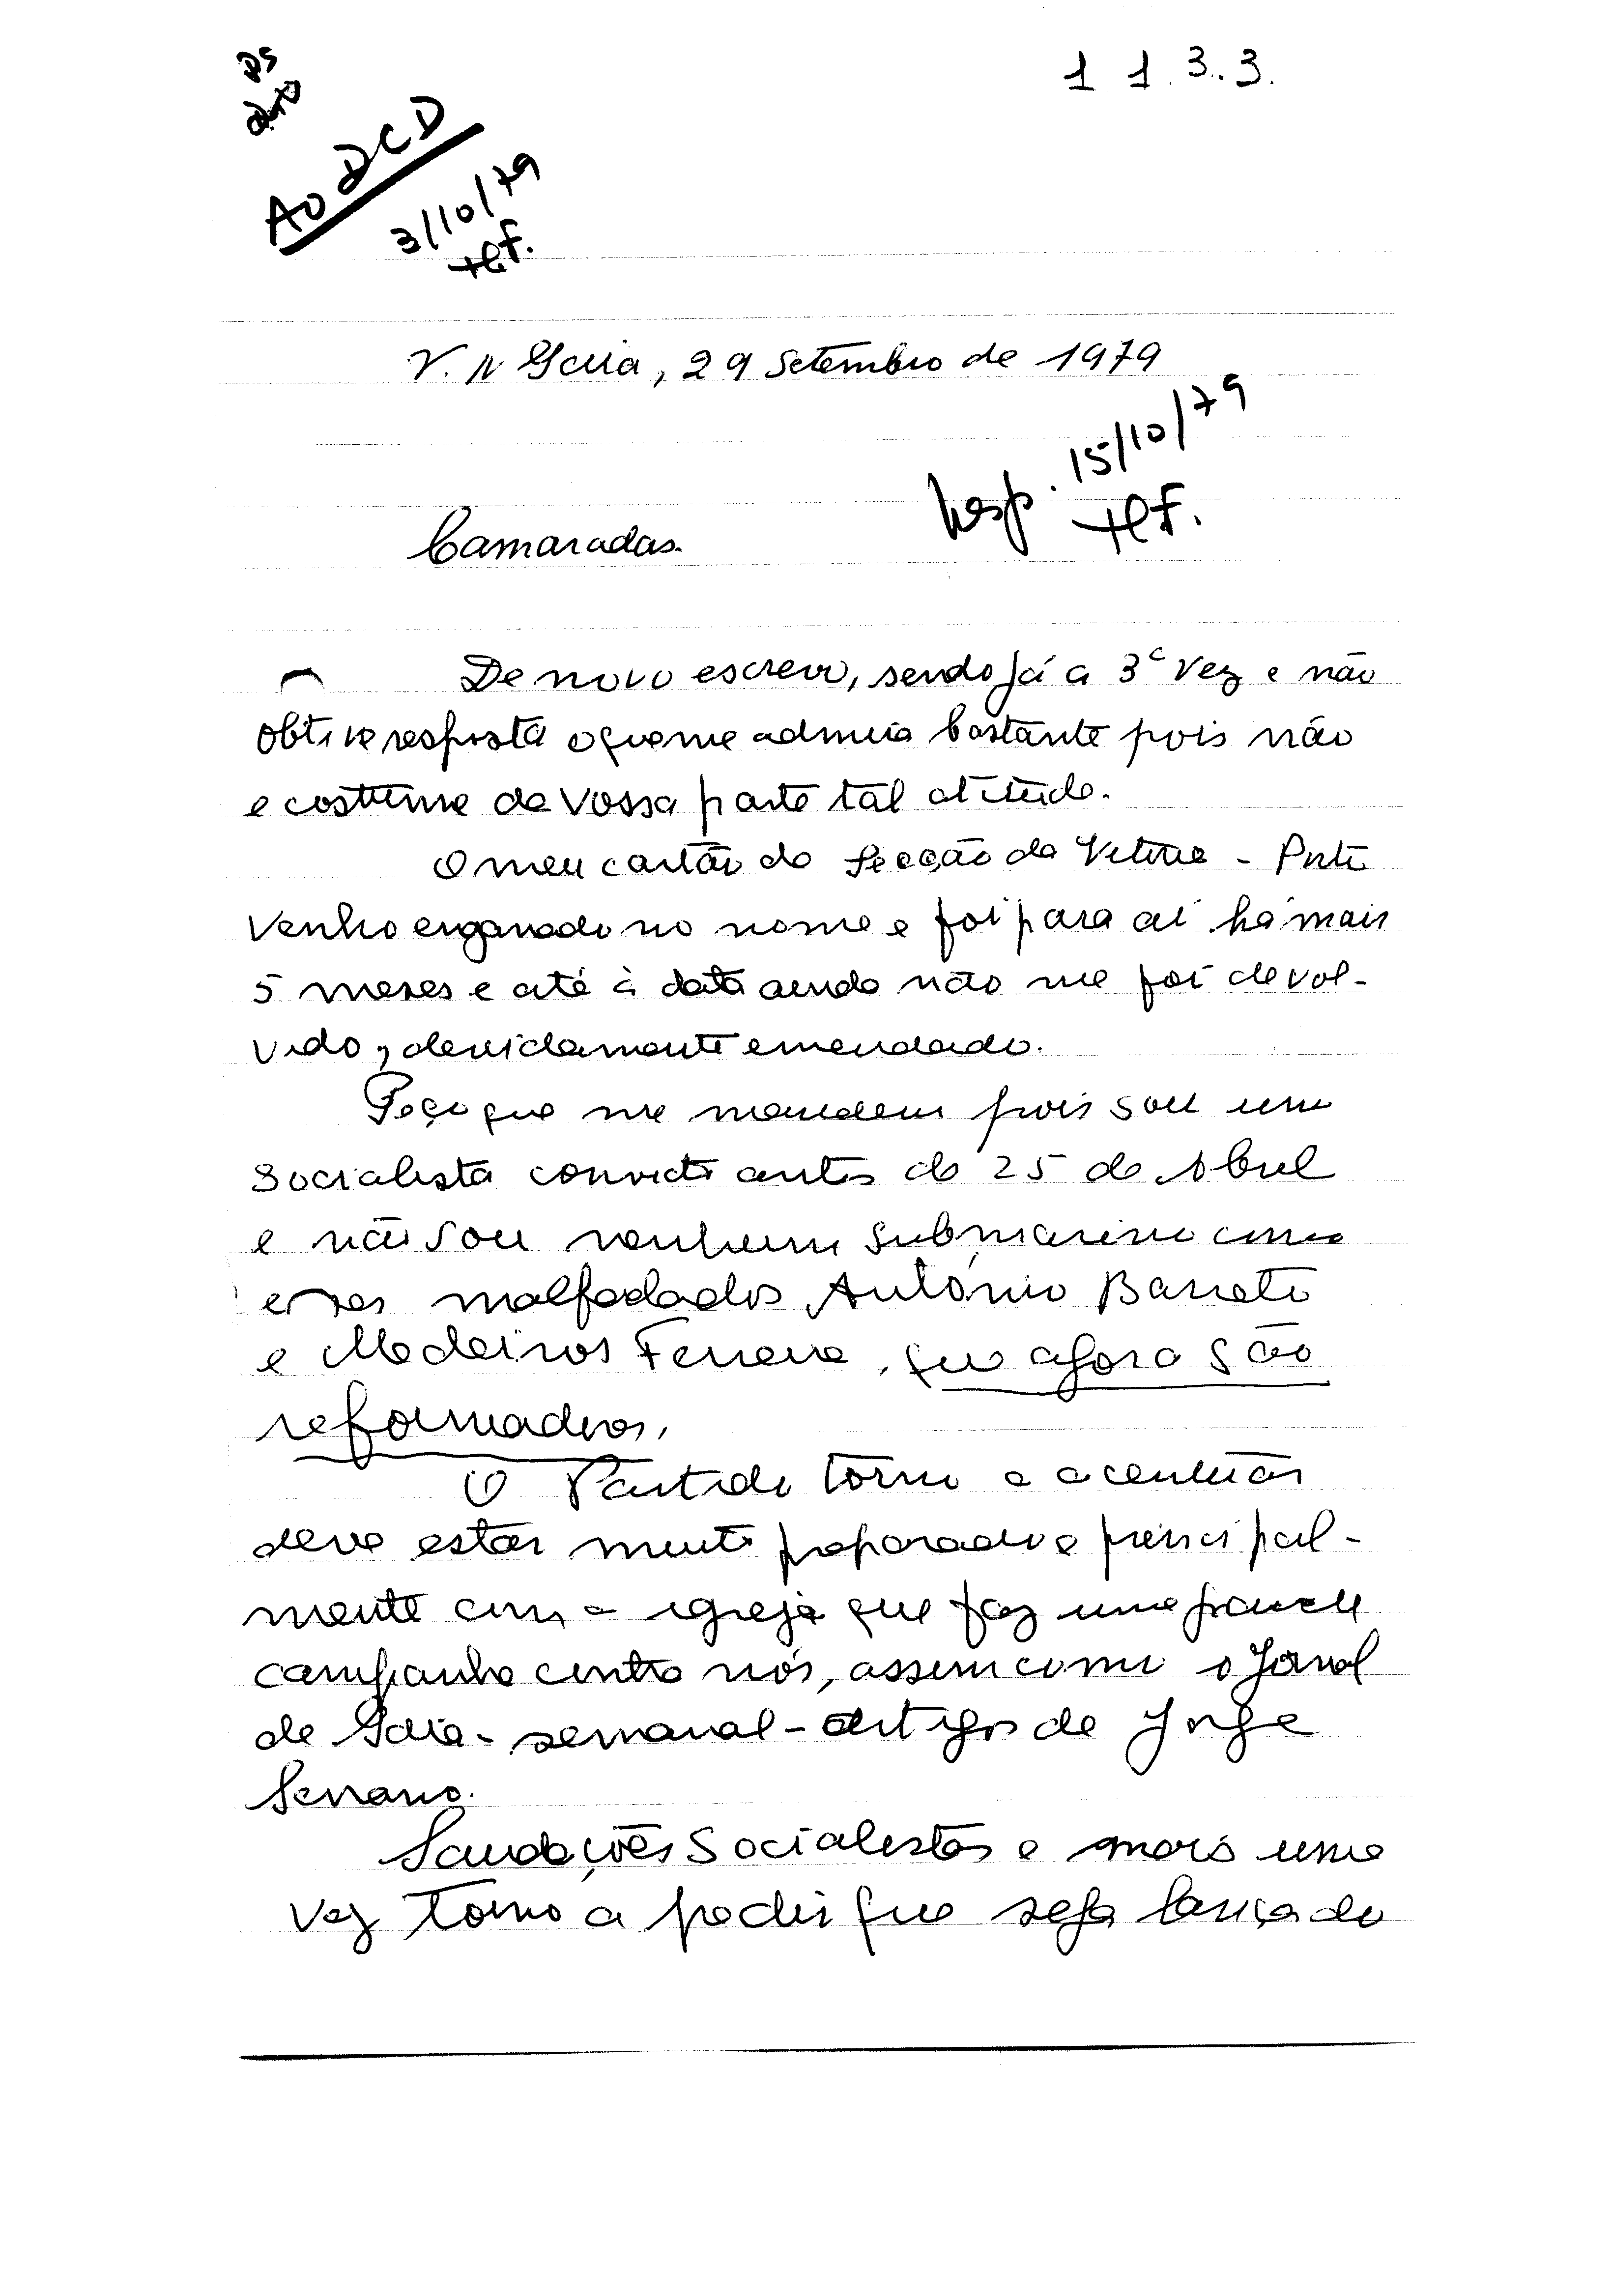 1 1. 3. 3.
Ao DCD
3/10/79
V. N Gaia, 29 Setembro de 1979
Resp. 15/10/79
Camaradas.
De novo escrevo, sendo já a 3ª vez e não
obtive resposta o que me admira bastante pois não
e costume da vossa parte tal atitude.
O meu cartão da Secção da Vitória - Porto
Venho enganado no nome e foi para aí há mais
5 meses e até à data ainda não me foi devol-
vido, devidamente emendado.
Peço que me mandem pois sou um
socialista convicto antes do 25 de Abril
e não sou nenhum submarino como
esses malfadados António Barreto
e Medeiros Ferreira, que agora são
reformadores.
O Partido torno a acentuar
deve estar muito preparado e princi pal-
mente com a igreja que faz uma grande
campanha contra nós, assim como o Jornal
de Gaia - semanal - artigos de Jorge
Serrano.
Saudações Socialistas e mais uma
vez torno a pedir que seja lançado